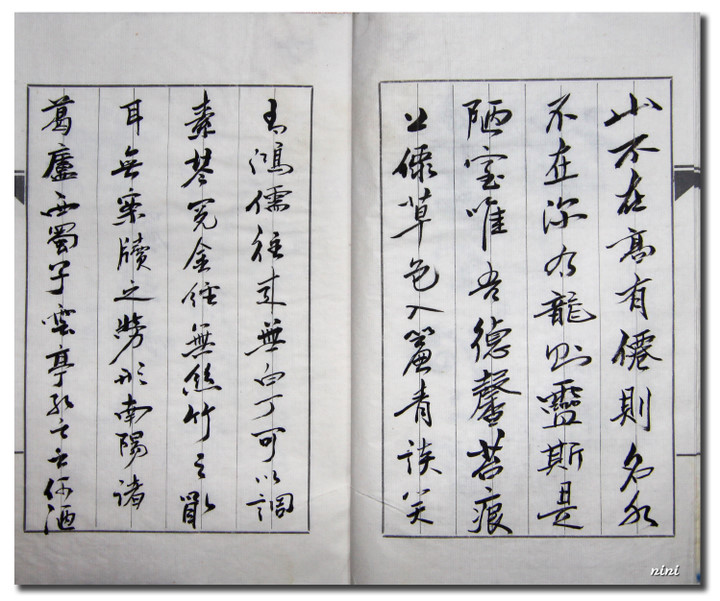 山不在高有僊則名水
不在深有龍則靈斯是
陋室唯吾德馨苔痕
上綠草色入簾青談笑
有鴻儒往來無白丁可以調
素琴閱金經無絲竹之亂
耳無案牘之勞形南陽諸
葛廬西蜀子雲亭孔子云何陋
nini